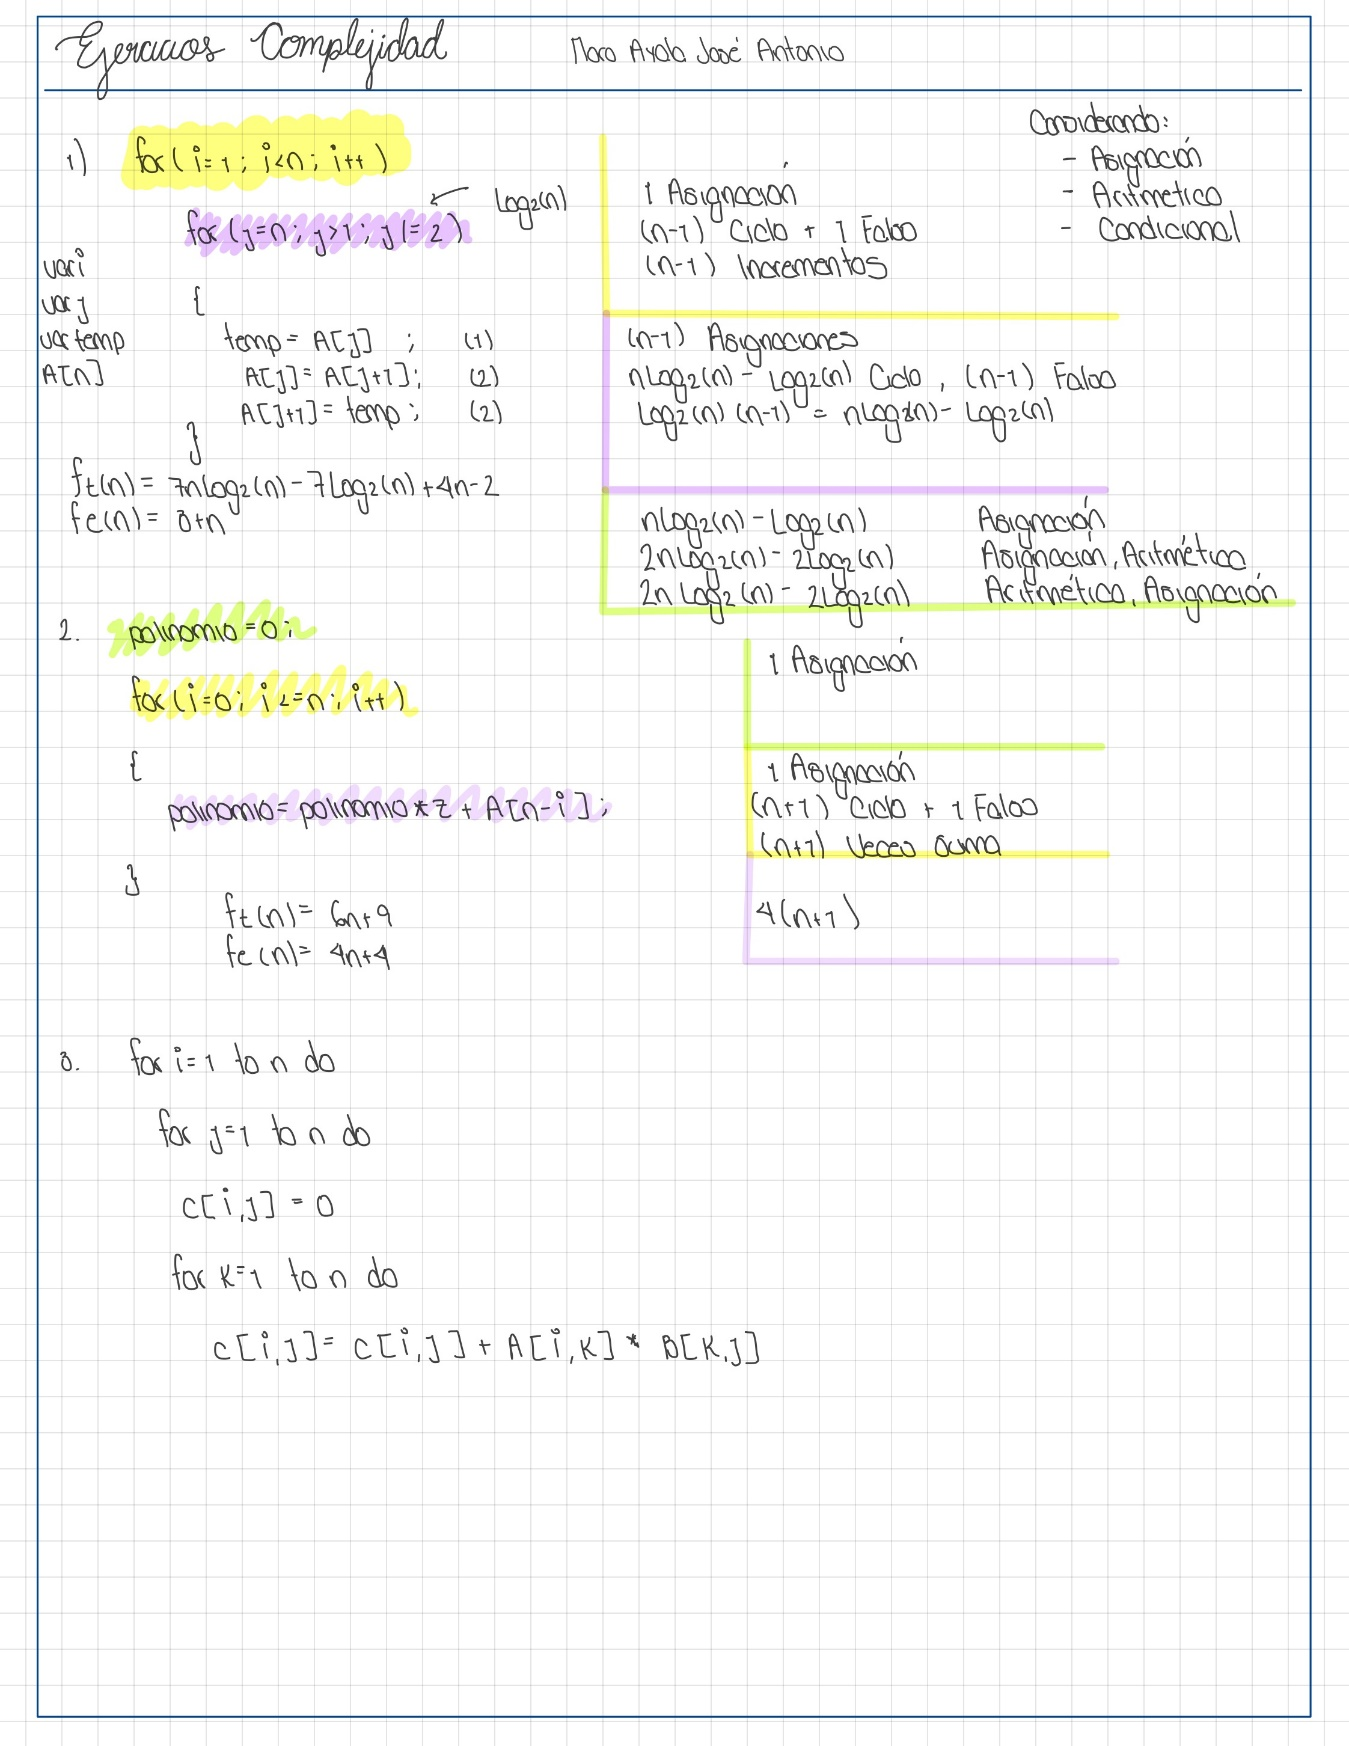 Ejercicios Complejidad Maro Ayala José Antonio
Considerando:
- Asignación
- Aritmetica
- Condicional
1) for(i=1; i<n; i++)
for(j=n; j>1; j/=2) Log2(n)
var i
var j {
var temp temp= A[j] ; (1)
A[n] A[j]= A[j+1]; (2)
A[j+1]= temp; (2)
}
ft(n)= 7nLog2(n)-7Log2(n)+4n-2
fe(n)= 3+n
1 Asignación
(n-1) Ciclo + 1 Falso
(n-1) Incrementos
(n-1) Asignaciones
nLog2(n)- Log2(n) Ciclo, (n-1) Falso
Log2(n)(n-1) = nLog2(n)- Log2(n)
nLog2(n)-Log2(n) Asignación
2nLog2(n)- 2Log2(n) Asignación, Aritmética
2nLog2(n)- 2Log2(n) Aritmética, Asignación
2. polinomio=0;
for(i=0; i<=n; i++)
{
polinomio= polinomio*z + A[n-i];
}
ft(n)= 6n+9
fe(n)= 4n+4
1 Asignación
1 Asignación
(n+1) Ciclo + 1 Falso
(n+1) Veces suma
4(n+1)
3. for i=1 to n do
for j=1 to n do
C[i,j] = 0
for K=1 to n do
C[i,j]= C[i,j]+ A[i,K] * B[K,j]